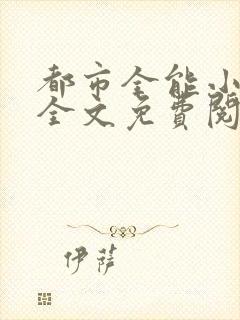 都市全能小
全文免费阅
伊萨